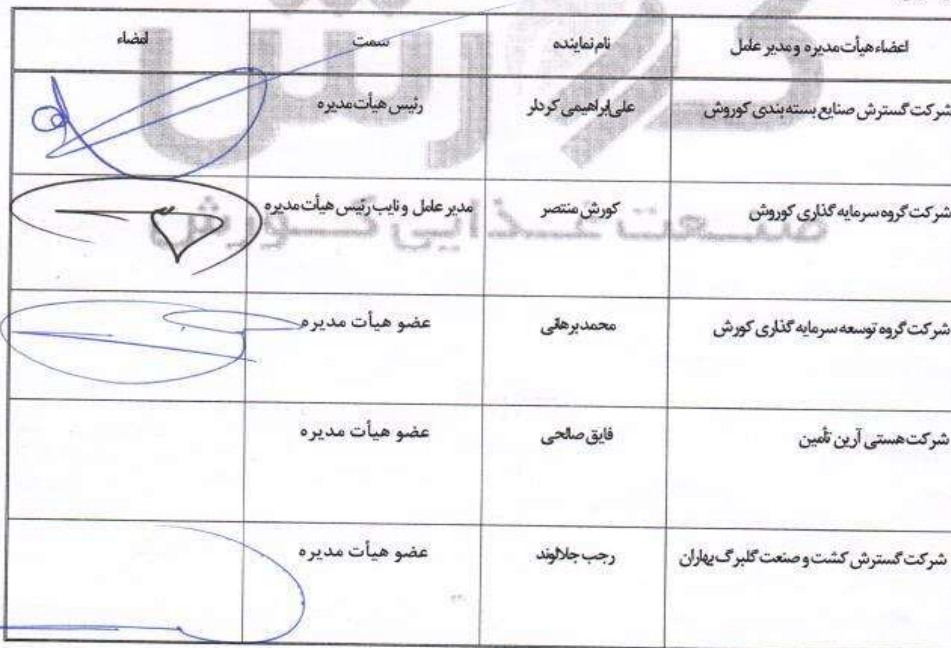 اعضاء هیأت مدیره و مدیر عامل	نام نماینده	سمت	امضاء
شرکت گسترش صنایع بسته بندی کوروش	علی ابراهیمی کردلر	رئیس هیأت مدیره
شرکت گروه سرمایه گذاری کوروش	کورش منتصر	مدیر عامل و نایب رئیس هیأت مدیره
شرکت گروه توسعه سرمایه گذاری کورش	محمد برهانی	عضو هیأت مدیره
شرکت هستی آرین تأمین	فایق صالحی	عضو هیأت مدیره
شرکت گسترش کشت و صنعت گلبرگ بهاران	رجب جلالوند	عضو هیأت مدیره
کورش
صنعت غذایی کورش